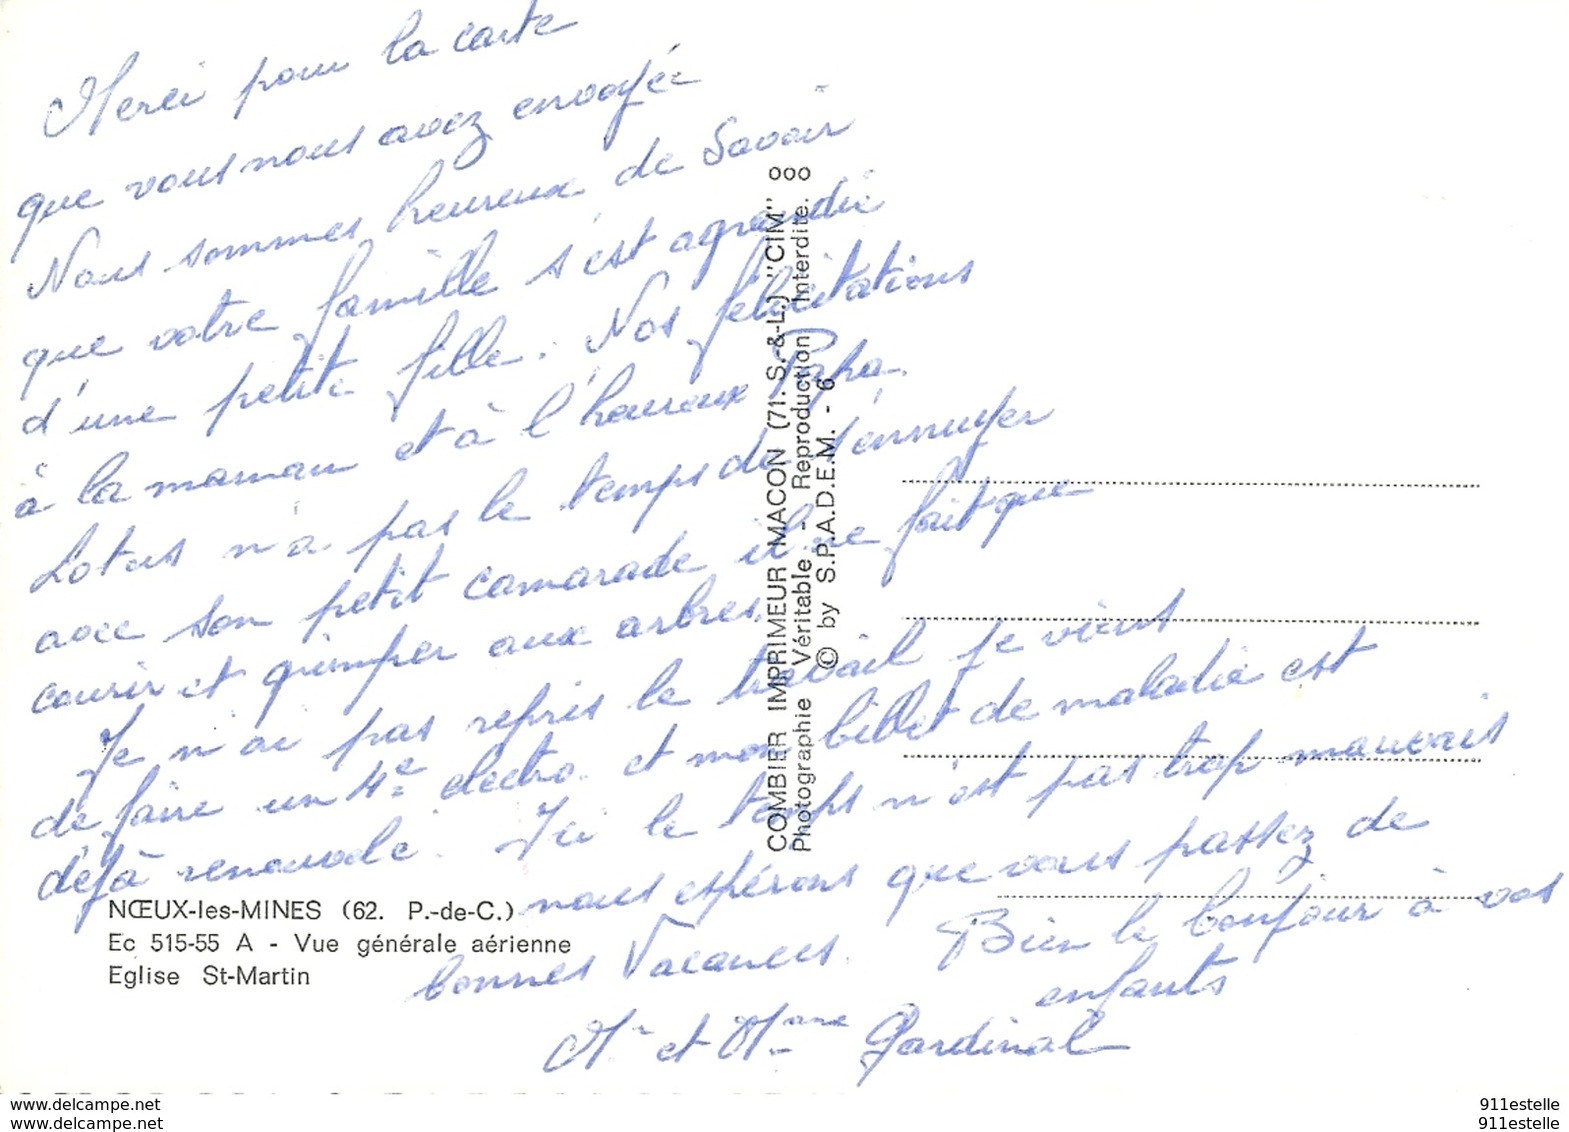 Merci pour la carte
que vous nous avez envoyée
Nous sommes heureux de Savoir
que votre famille s'est agrandie
d'une petite fille. Nos félicitations
à la maman et à l'heureux Papa.
Lotus n'a pas le temps de s'ennuyer
avec son petit camarade il ne fait que
courir et grimper aux arbres.
Je n'ai pas repris le travail je viens
de faire un 4e électro. et mon billet de maladie est
déjà renouvelé. Ici le temps n'est pas trop mauvais
nous espérons que vous passez de
bonnes Vacances. Bien le bonjour à vos
enfants
Mr et Mme Gardinal
COMBIER IMPRIMEUR MACON (71. S.-&-L.) "CIM"
Photographie Véritable - Reproduction Interdite.
© by S.P.A.D.E.M. - 6
NŒUX-les-MINES (62. P.-de-C.)
Ec 515-55 A - Vue générale aérienne
Eglise St-Martin
911estelle
911estelle
911estelle
911estelle